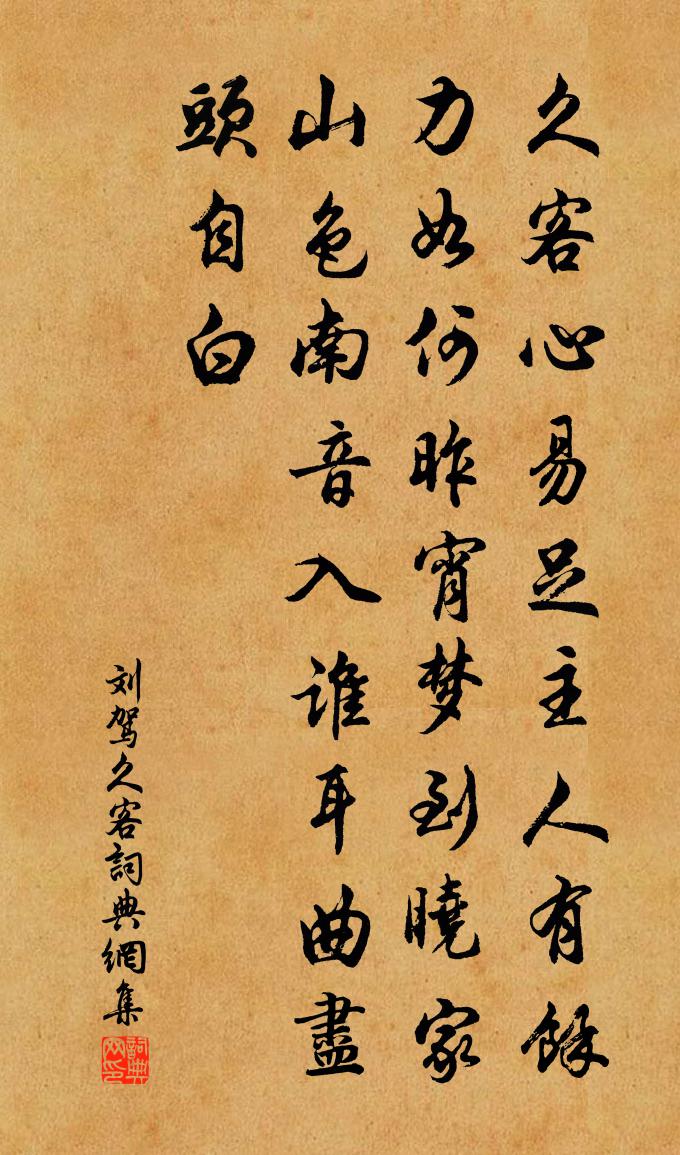 久客心易足主人有餘
力如何昨宵梦到曉家
山色南音入谁耳曲盡
頭自白
刘驾久客詞典網集
詞典网印